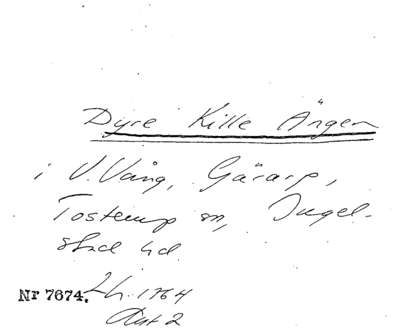 Dyre Kille Ängen
i V. Vång, Gärarp,
Tostarup sn, Ingel-
stad hd.
Nr 7674. Lh. 1764
Akt 2